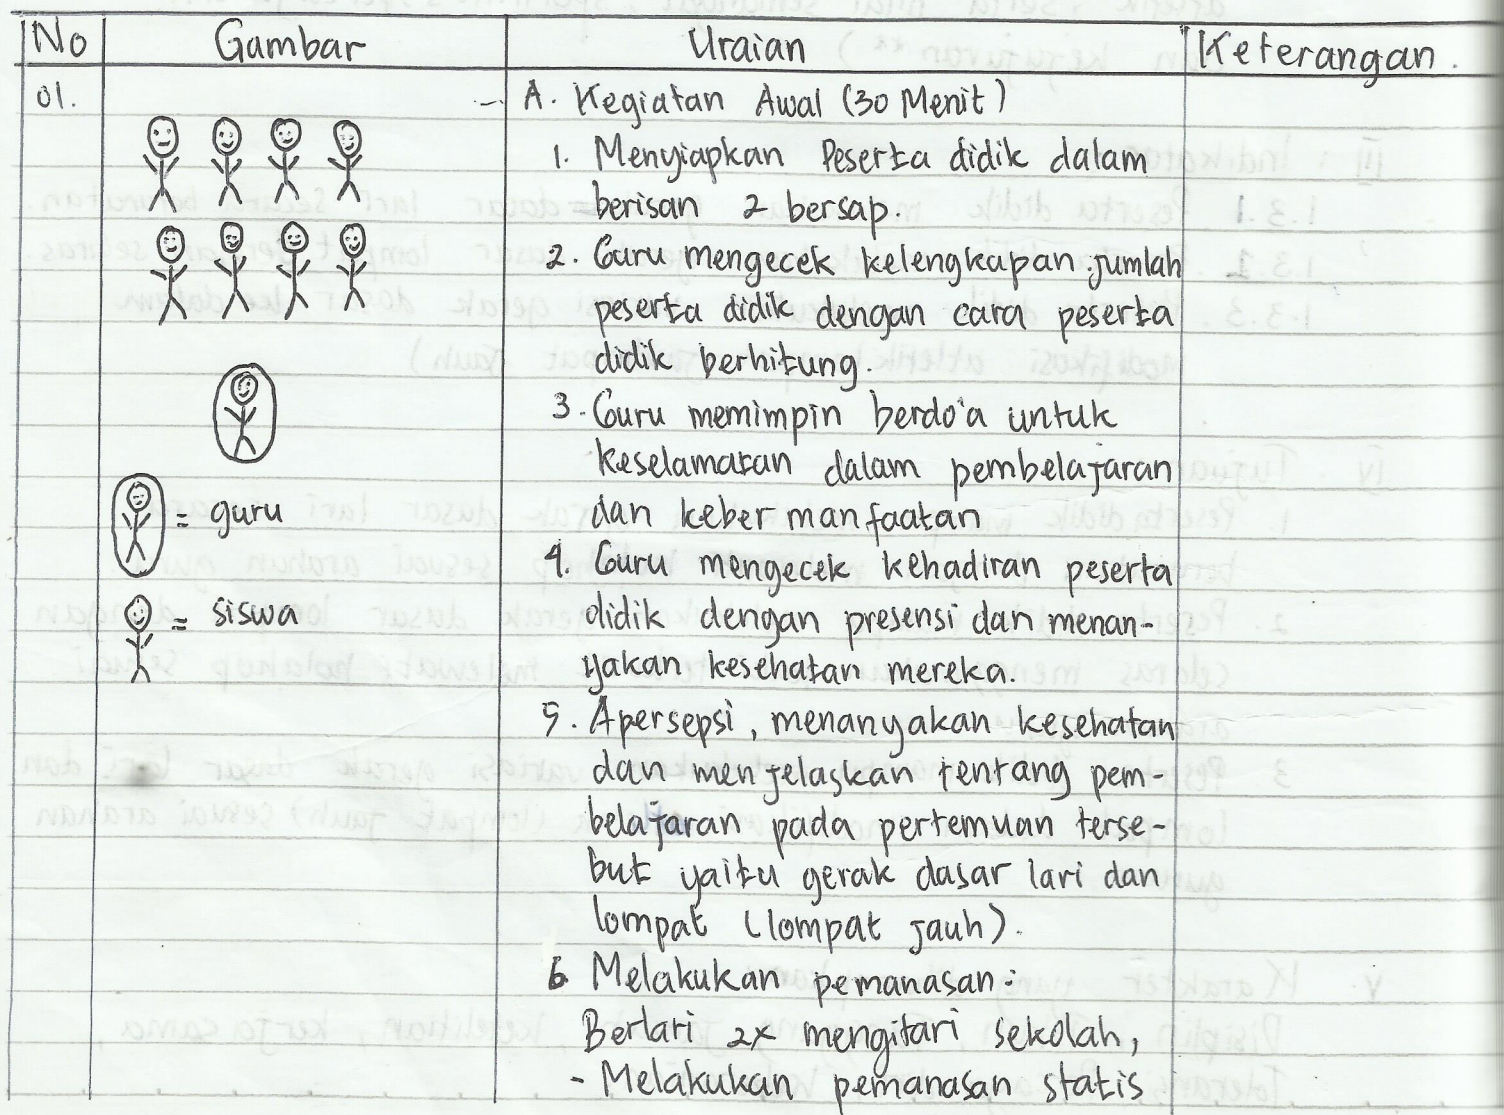 No Gambar Uraian Keterangan.
01. A. Kegiatan Awal (30 Menit)
1. Menyiapkan Peserta didik dalam
berisan 2 bersap.
2. Guru mengecek kelengkapan jumlah
peserta didik dengan cara peserta
didik berhitung.
3. Guru memimpin berdo'a untuk
keselamatan dalam pembelajaran
dan keber manfaatan
= guru
4. Guru mengecek kehadiran peserta
didik dengan presensi dan menan-
yakan kesehatan mereka.
= siswa
5. Apersepsi, menanyakan kesehatan
dan menjelaskan tentang pem-
belajaran pada pertemuan terse-
but yaitu gerak dasar lari dan
lompat (lompat jauh).
6 Melakukan pemanasan:
Berlari 2x mengitari sekolah,
- Melakukan pemanasan statis